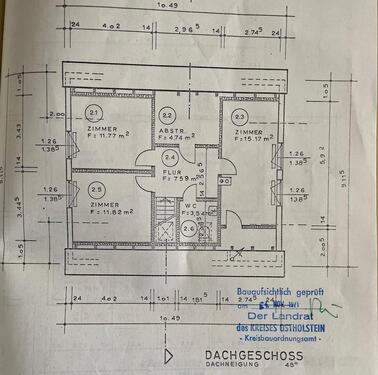 1o.49
24 4.o2 14 2,96⁵ 14 2.74⁵ 24
2.1
ZIMMER
F= 11.77 m²
2.2
ABSTR.
F= 4.74 m²
2.3
ZIMMER
F= 15.17 m²
2.00
1.o5
3.43
1.26
1.38⁵
2.4
FLUR
F= 7.59 m²
1.26
1.38⁵
5,9²
9.11⁵
2.5
ZIMMER
F= 11.82 m²
WC
F=3,54 m²
2.6
1.26
1.38⁵
3.44⁵
1.26
1.38⁵
14
1.o5
2.o5
24 4.o2 14 1.o1 14 1.81⁵ 14 2.74⁵ 24
1o.49
Baugufsichtlich geprüft
am
Der Landrat
des KREISES OSTHOLSTEIN
- Kreisbauordnungsamt -
DACHGESCHOSS
DACHNEIGUNG 48°